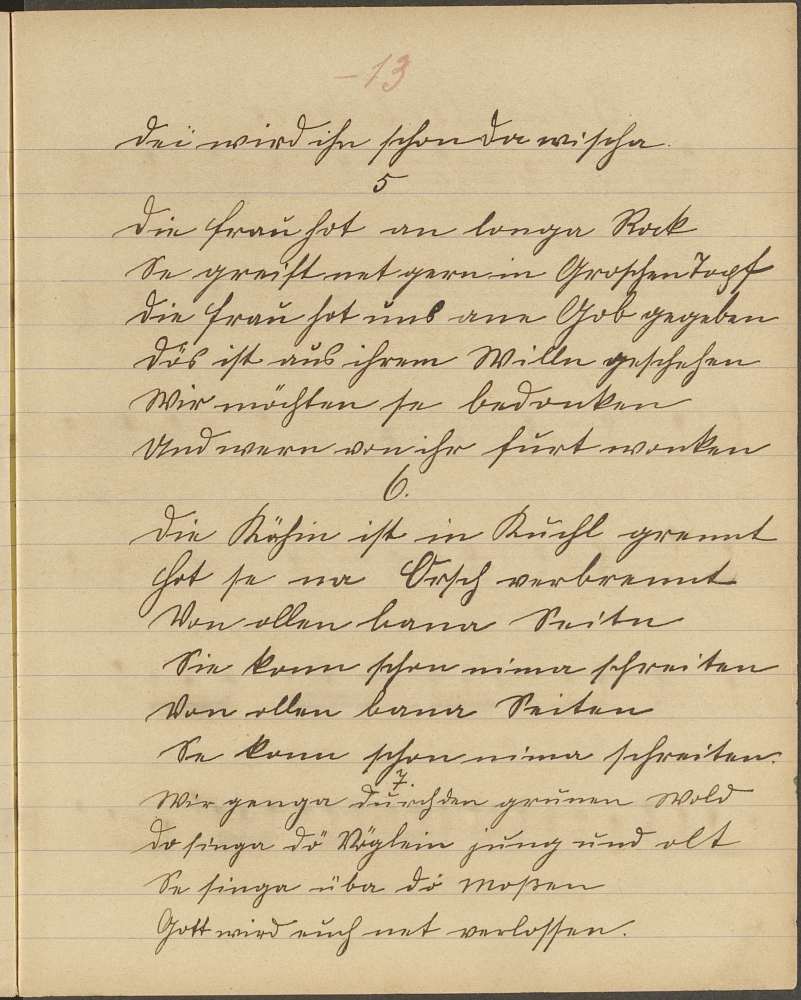 -13
Dei wird ihn schon dawischa.
5
Die Frau hot an longa Rock
Se greift net gern in Groschen Topf
Die Frau hot uns ane Gob gegeben
Dös ist aus ihrem Willn geschehen
Wir möchten se bedonken
Und wern von ihr furt wonken
6.
Die Köhin ist in Kuchl grennt
Hot se na Orsch verbrennt
Von ollen bana Seitn
Sie konn schon nima schreiten
Von ollen bana Seiten
Se konn schon nima schreiten.
7.
Wir genga durch den grünen Wold
Do singa dö Vöglein jung und olt
Se singa üba dö Moßen
Gott wird euch net verlossen.